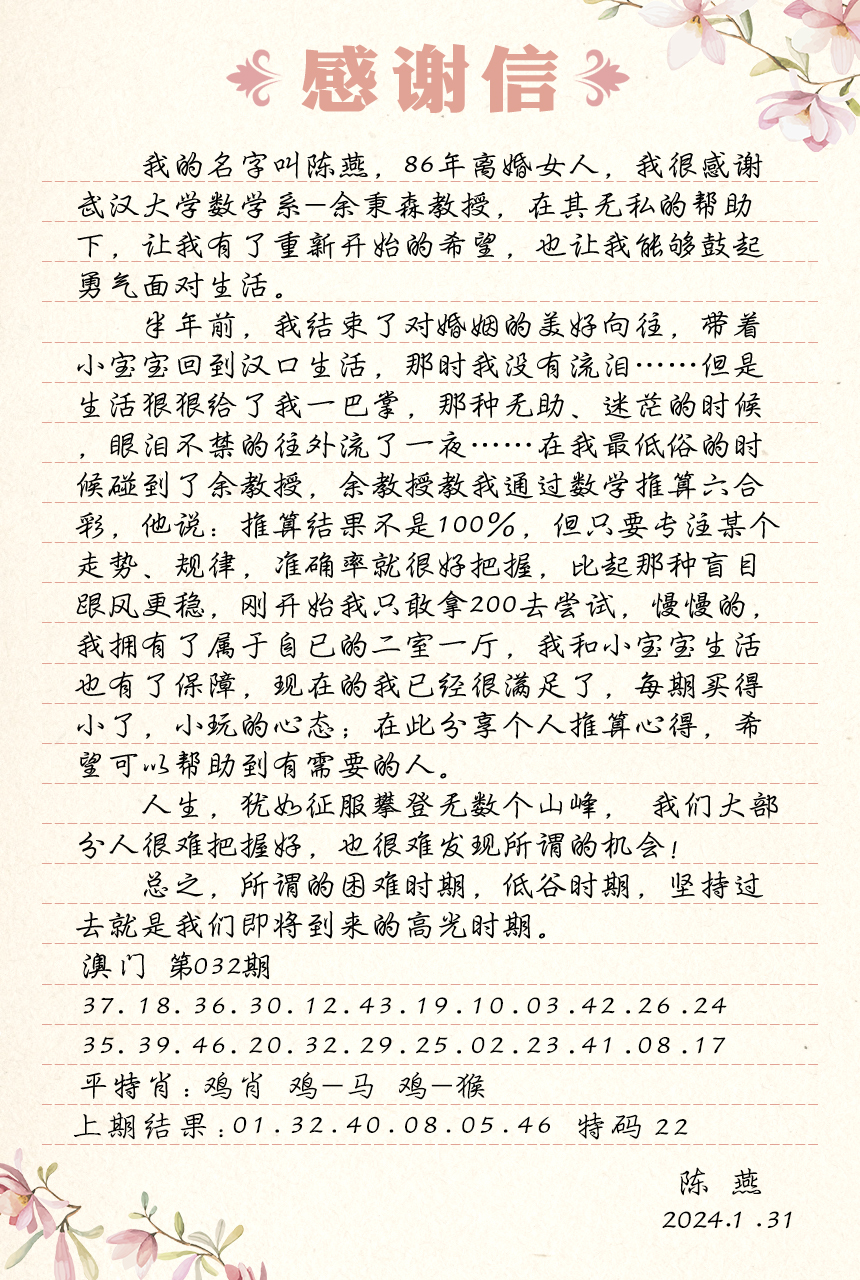 感谢信
我的名字叫陈燕，86年离婚女人，我很感谢
武汉大学数学系—余秉森教授，在其无私的帮助
下，让我有了重新开始的希望，也让我能够鼓起
勇气面对生活。
半年前，我结束了对婚姻的美好向往，带着
小宝宝回到汉口生活，那时我没有流泪……但是
生活狠狠给了我一巴掌，那种无助、迷茫的时候
，眼泪不禁的往外流了一夜……在我最低俗的时
候碰到了余教授，余教授教我通过数学推算六合
彩，他说：推算结果不是100%，但只要专注某个
走势、规律，准确率就很好把握，比起那种盲目
跟风更稳，刚开始我只敢拿200去尝试，慢慢的，
我拥有了属于自已的二室一厅，我和小宝宝生活
也有了保障，现在的我已经很满足了，每期买得
小了，小玩的心态；在此分享个人推算心得，希
望可以帮助到有需要的人。
人生，犹如征服攀登无数个山峰， 我们大部
分人很难把握好，也很难发现所谓的机会！
总之，所谓的困难时期，低谷时期，坚持过
去就是我们即将到来的高光时期。
澳门 第032期
37.18.36.30.12.43.19.10.03.42.26.24
35.39.46.20.32.29.25.02.23.41.08.17
平特肖：鸡肖 鸡—马 鸡—猴
上期结果：01.32.40.08.05.46 特码 22
陈 燕
2024.1.31